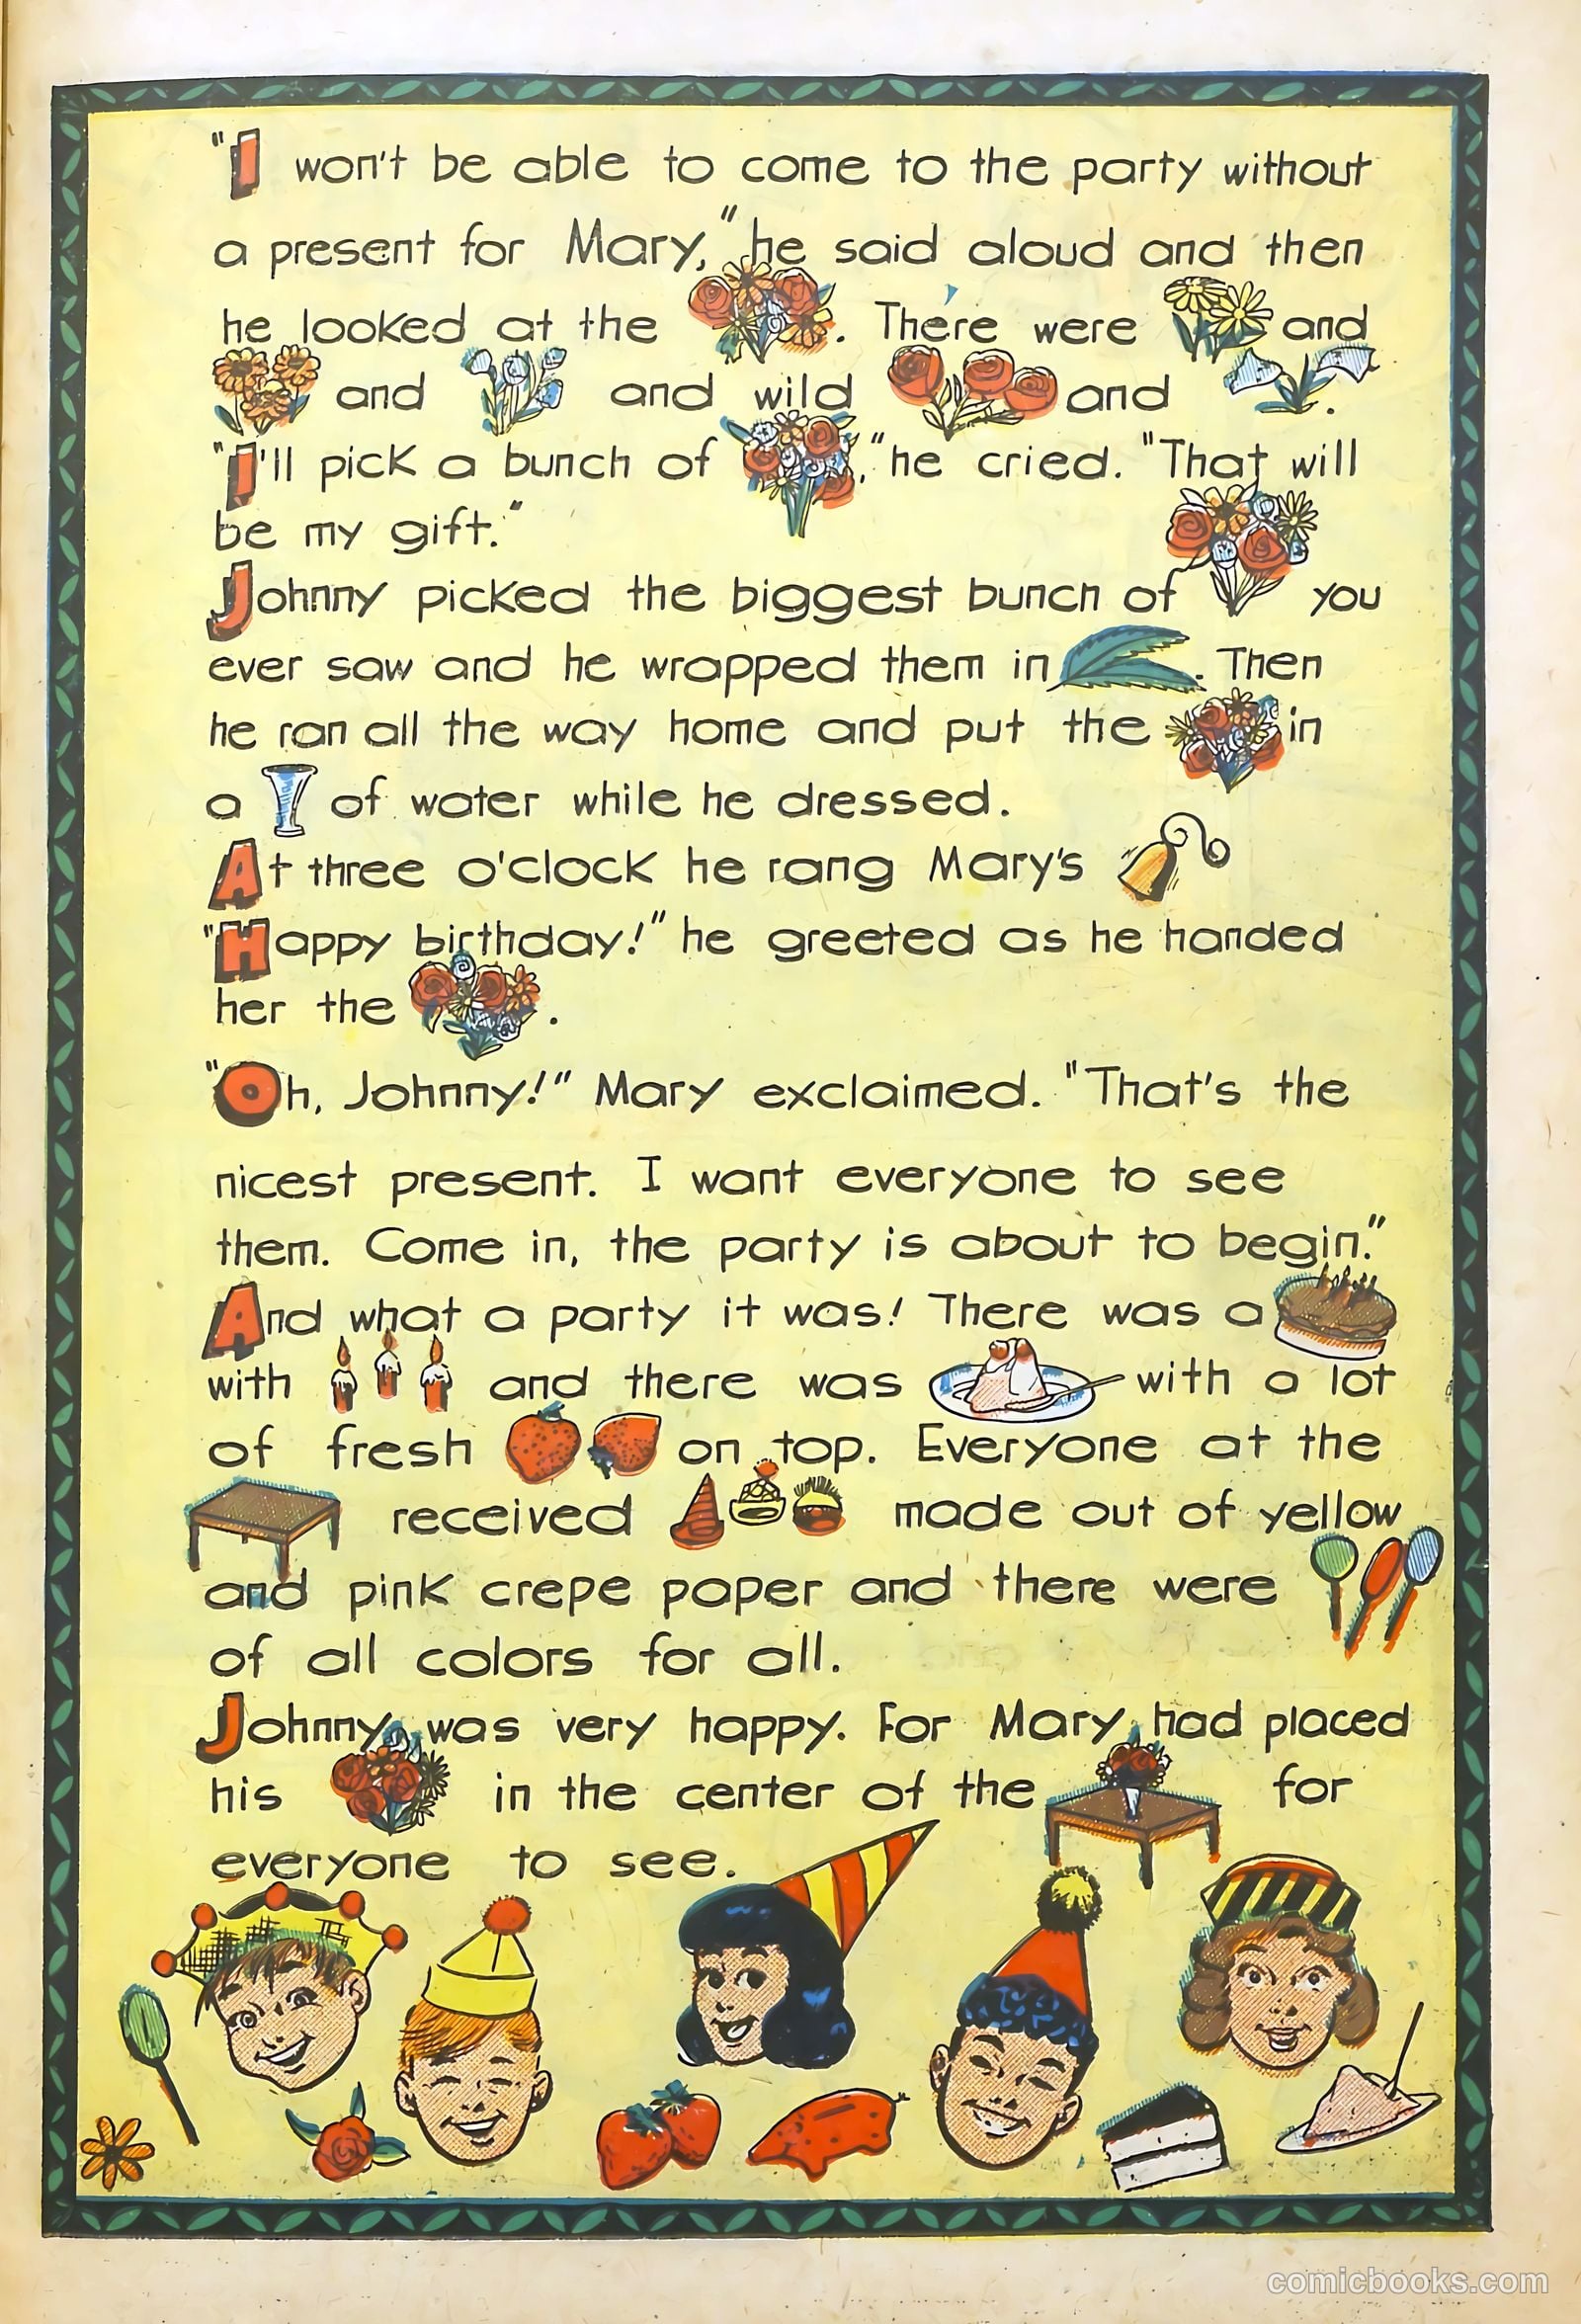 "I won't be able to come to the party without
a present for Mary," he said aloud and then
he looked at the . There were and
and and wild and .
"I'll pick a bunch of ," he cried. "That will
be my gift."
Johnny picked the biggest bunch of you
ever saw and he wrapped them in . Then
he ran all the way home and put the in
a of water while he dressed.
At three o'clock he rang Mary's
"Happy birthday!" he greeted as he handed
her the .
"Oh, Johnny!" Mary exclaimed. "That's the
nicest present. I want everyone to see
them. Come in, the party is about to begin."
And what a party it was! There was a
with and there was with a lot
of fresh on top. Everyone at the
received made out of yellow
and pink crepe paper and there were
of all colors for all.
Johnny was very happy. For Mary had placed
his in the center of the for
everyone to see.
comicbooks.com